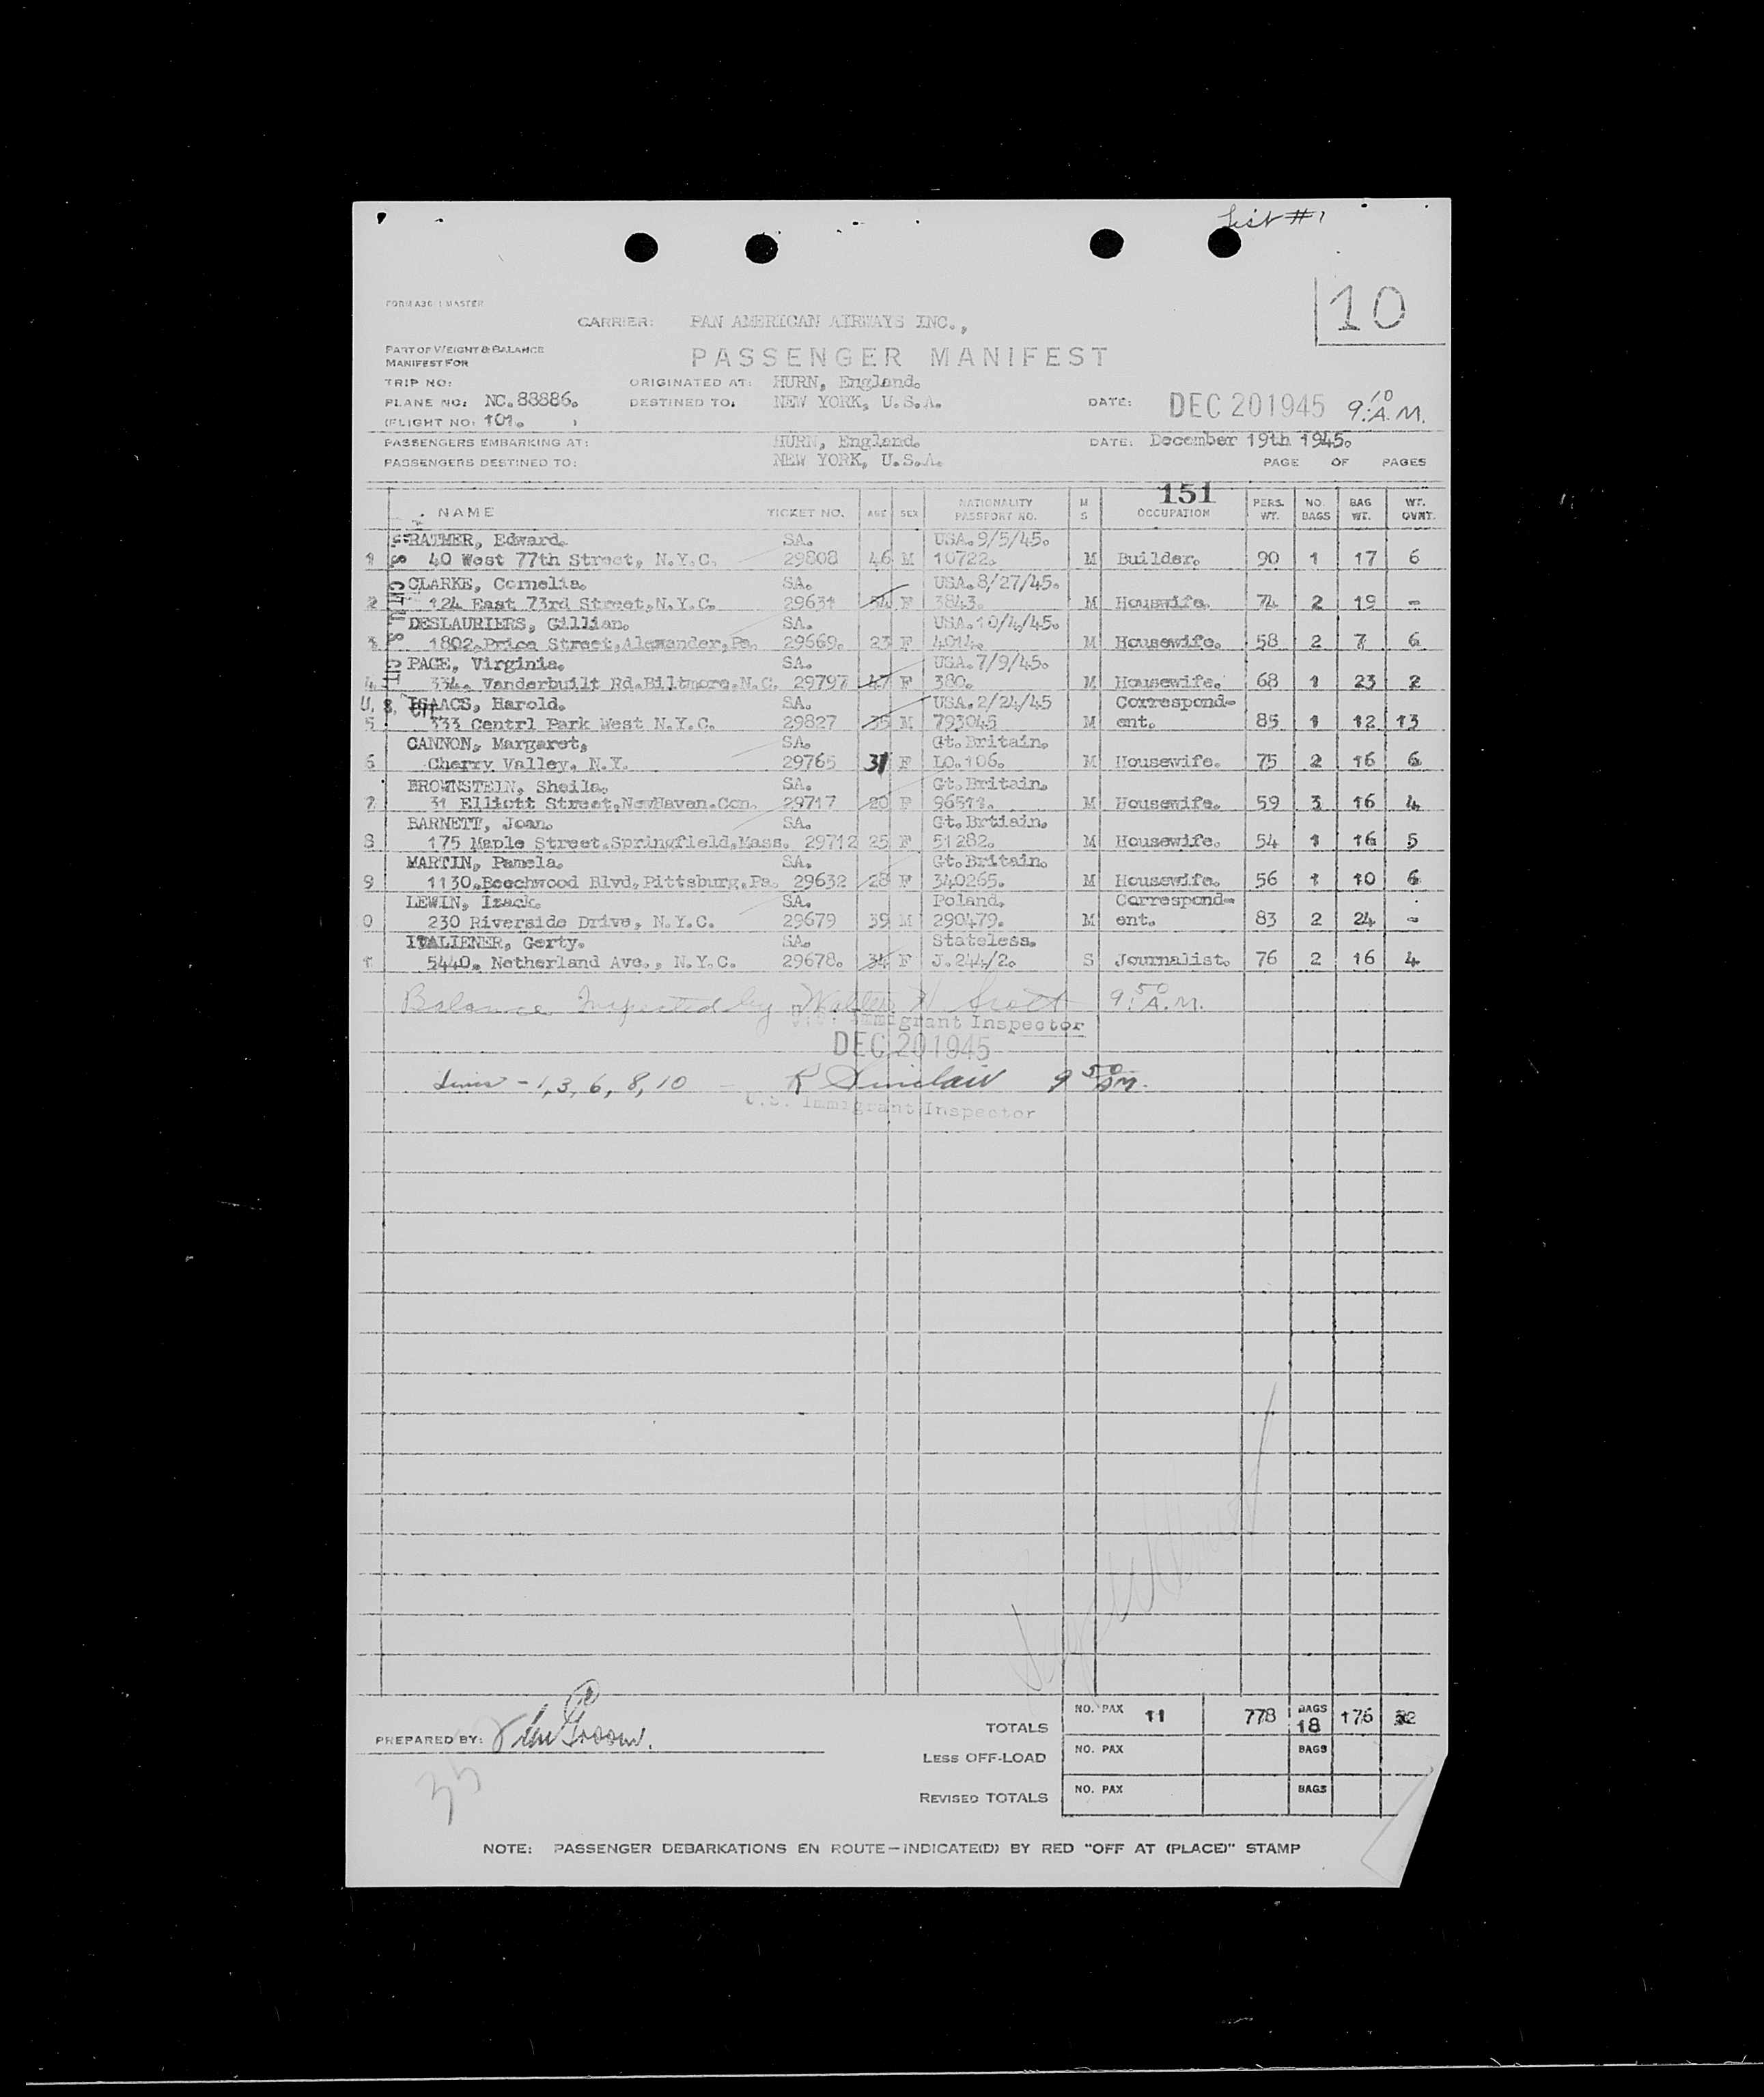 List #1
10
FORM A30-1 MASTER
CARRIER: PAN AMERICAN AIRWAYS INC.,
PART OF WEIGHT & BALANCE
MANIFEST FOR
PASSENGER MANIFEST
TRIP NO: ORIGINATED AT: HURN, England.
PLANE NO: NC.88886. DESTINED TO: NEW YORK, U.S.A. DATE: DEC 20 1945 9:10 A.M.
(FLIGHT NO: 101. )
PASSENGERS EMBARKING AT: HURN, England. DATE: December 19th 1945.
PASSENGERS DESTINED TO: NEW YORK, U.S.A. PAGE OF PAGES
151
NAME TICKET NO. AGE SEX NATIONALITY PASSPORT NO. M S OCCUPATION PERS. WT. NO. BAGS BAG WT. WT. OVNT.
RATHER, Edward. SA. USA.9/5/45.
1 40 West 77th Street, N.Y.C. 29808 46 M 10722. M Builder. 90 1 17 6
CLARKE, Cornelia. SA. USA.8/27/45.
2 124 East 73rd Street,N.Y.C. 29631 34 F 3843. M Houswife. 74 2 19 -
DESLAURIERS, Gillian. SA. USA.10/4/45.
3 1802.Price Street,Alexander,Pa. 29669. 23 F 4014. M Housewife. 58 2 7 6
PAGE, Virginia. SA. USA.7/9/45.
4 334. Vanderbuilt Rd.Biltmore.N.C. 29797 47 F 380. M Housewife. 68 1 23 2
U. S. CIT
ISAACS, Harold. SA. USA.2/24/45 Correspond-
5 333 Centrl Park West N.Y.C. 29827 35 M 793045 M ent. 85 1 12 13
CANNON, Margaret, SA. Gt.Britain.
6 Cherry Valley. N.Y. 29765 31 F LO.106. M Housewife. 75 2 16 6
BROWNSTEIN, Sheila. SA. Gt.Britain.
7 31 Elliott Street,NewHaven.Con. 29717 20 F 96511. M Housewife. 59 3 16 4
BARNETT, Joan. SA. Gt.Brtiain.
8 175 Maple Street,Springfield,Mass. 29712 25 F 51282. M Housewife. 54 1 16 5
MARTIN, Pamela. SA. Gt.Britain.
9 1130.Beechwood Blvd,Pittsburg.Pa. 29632 28 F 340265. M Housewife. 56 1 10 6
LEWIN, Izack. SA. Poland. Correspond-
0 230 Riverside Drive, N.Y.C. 29679 39 M 290479. M ent. 83 2 24 -
ITALIENER, Gerty. SA. Stateless.
1 5440. Netherland Ave., N.Y.C. 29678. 34 F J.244/2. S Journalist. 76 2 16 4
Balance Inspected by Walter H Scott 9:50 A.M.
U.S. Immigrant Inspector
DEC 20 1945
Lines - 1, 3, 6, 8, 10 - R Sinclair 9 50 AM.
U.S. Immigrant Inspector
TOTALS NO. PAX 11 778 BAGS 18 176
PREPARED BY:
LESS OFF-LOAD NO. PAX BAGS
35
REVISED TOTALS NO. PAX BAGS
NOTE: PASSENGER DEBARKATIONS EN ROUTE—INDICATE(D) BY RED "OFF AT (PLACE)" STAMP